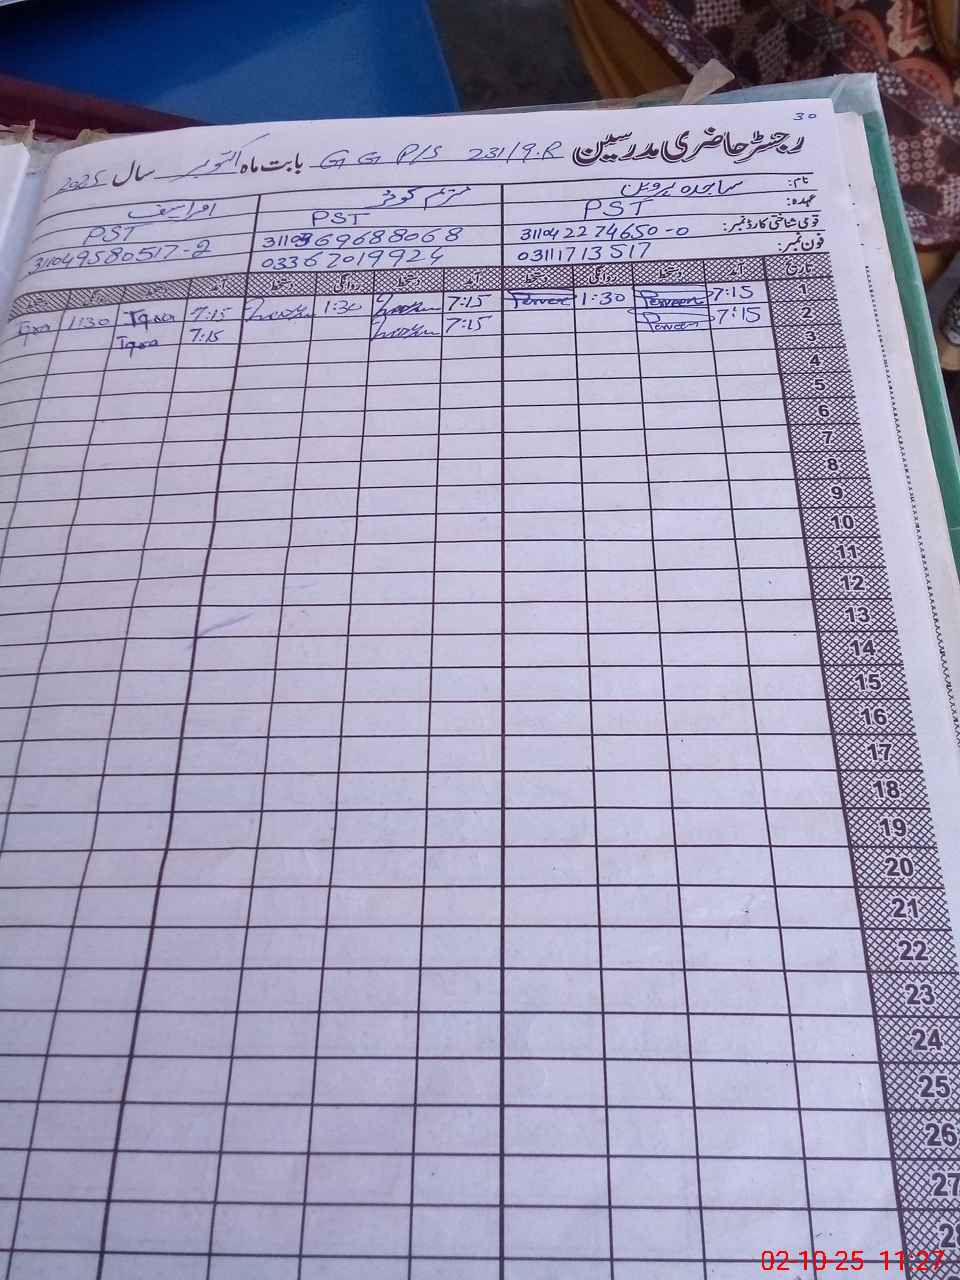 30
رجسٹر حاضری مدرسین GGP/S 231/9.R بابت ماہ اکتوبر سال 2025
نام: ساجدہ پروین
عہدہ: PST PST PST
قومی شناختی کارڈ نمبر: 31104 2274650-0 3110369688068 311049580517-2
فون نمبر: 03111713517 03367019924
تاریخ آمد دستخط روانگی دستخط آمد دستخط روانگی دستخط آمد دستخط روانگی دستخط
1 7:15 Parveen 1:30 Parveen 7:15 1:30 7:15 Iqra 1:30 Iqra
2 7:15 Parveen 7:15 7:15 Iqra
3
4
5
6
7
8
9
10
11
12
13
14
15
16
17
18
19
20
21
22
23
24
25
26
27
28
02-10-25 11:27